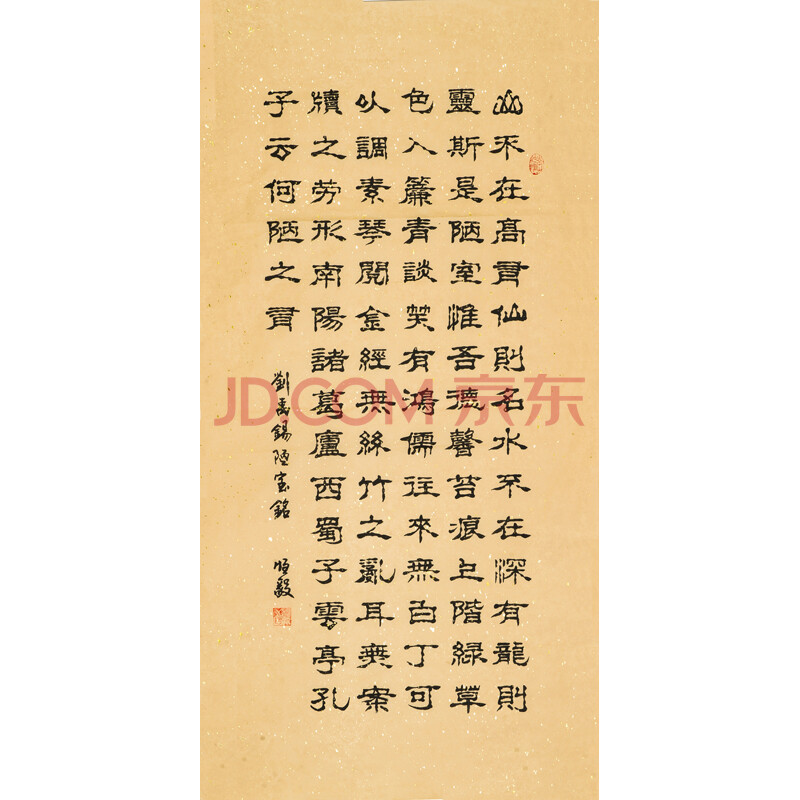 山不在高有仙則名水不在深有龍則
靈斯是陋室惟吾德馨苔痕上階綠草
色入簾青談笑有鴻儒往來無白丁可
以調素琴閱金經無絲竹之亂耳無案
牘之劳形南陽諸葛廬西蜀子雲亭孔
子云何陋之有
劉禹錫陋室銘 恒毅
JD.COM 京东